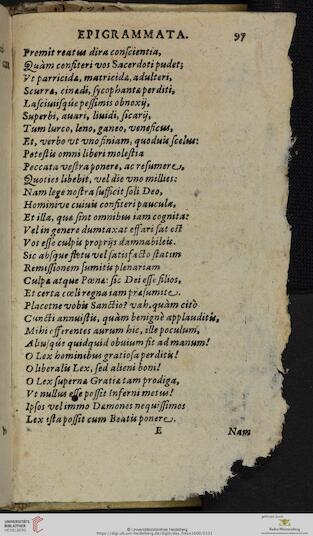 EPIGRAMMATA. 97
Premit reatus dira conscientia,
Quàm confiteri vos Sacerdoti pudet;
Vt parricidæ, matricidæ, adulteri,
Scurræ, cinædi, sycophantæ perditi,
Lasciuiisq́ue pessimis obnoxij,
Superbi, auari, liuidi, sicarij,
Tum lurco, leno, ganeo, veneficus,
Et, verbo vt vno finiam, quoduis scelus:
Potestis omni liberi molestia
Peccata vestra ponere, ac resumere,
Quoties libebit, vel die vno millies:
Nam lege nostra sufficit soli Deo,
Hominive cuiuis confiteri paucula,
Et illa, quæ sint omnibus iam cognita:
Vel in genere dumtaxat effari sat est
Vos esse culpis proprijs damnabileis.
Sic absque fletu vel satisfacto statim
Remissionem sumitis plenariam
Culpæ atque Pœnæ: sic Dei esse filios,
Et certa cœli regna iam præsumite.
Placetne vobis Sanctio? vah, quàm citò
Cuncti annuistis, quàm benignè applauditis,
Mihi efferentes aurum hic, ille poculum,
Aliusq́ue quidquid obuium sit ad manum!
O Lex hominibus gratiosa perditis!
O liberalis Lex, sed alieni boni!
O Lex supernæ Gratiæ tam prodiga,
Vt nullus esse possit Inferni metus!
Ipsos vel immo Dæmones nequissimos
Lex ista possit cum Beatis ponere.
E Nam
UNIVERSITÄTS-
BIBLIOTHEK
HEIDELBERG
© Universitätsbibliothek Heidelberg